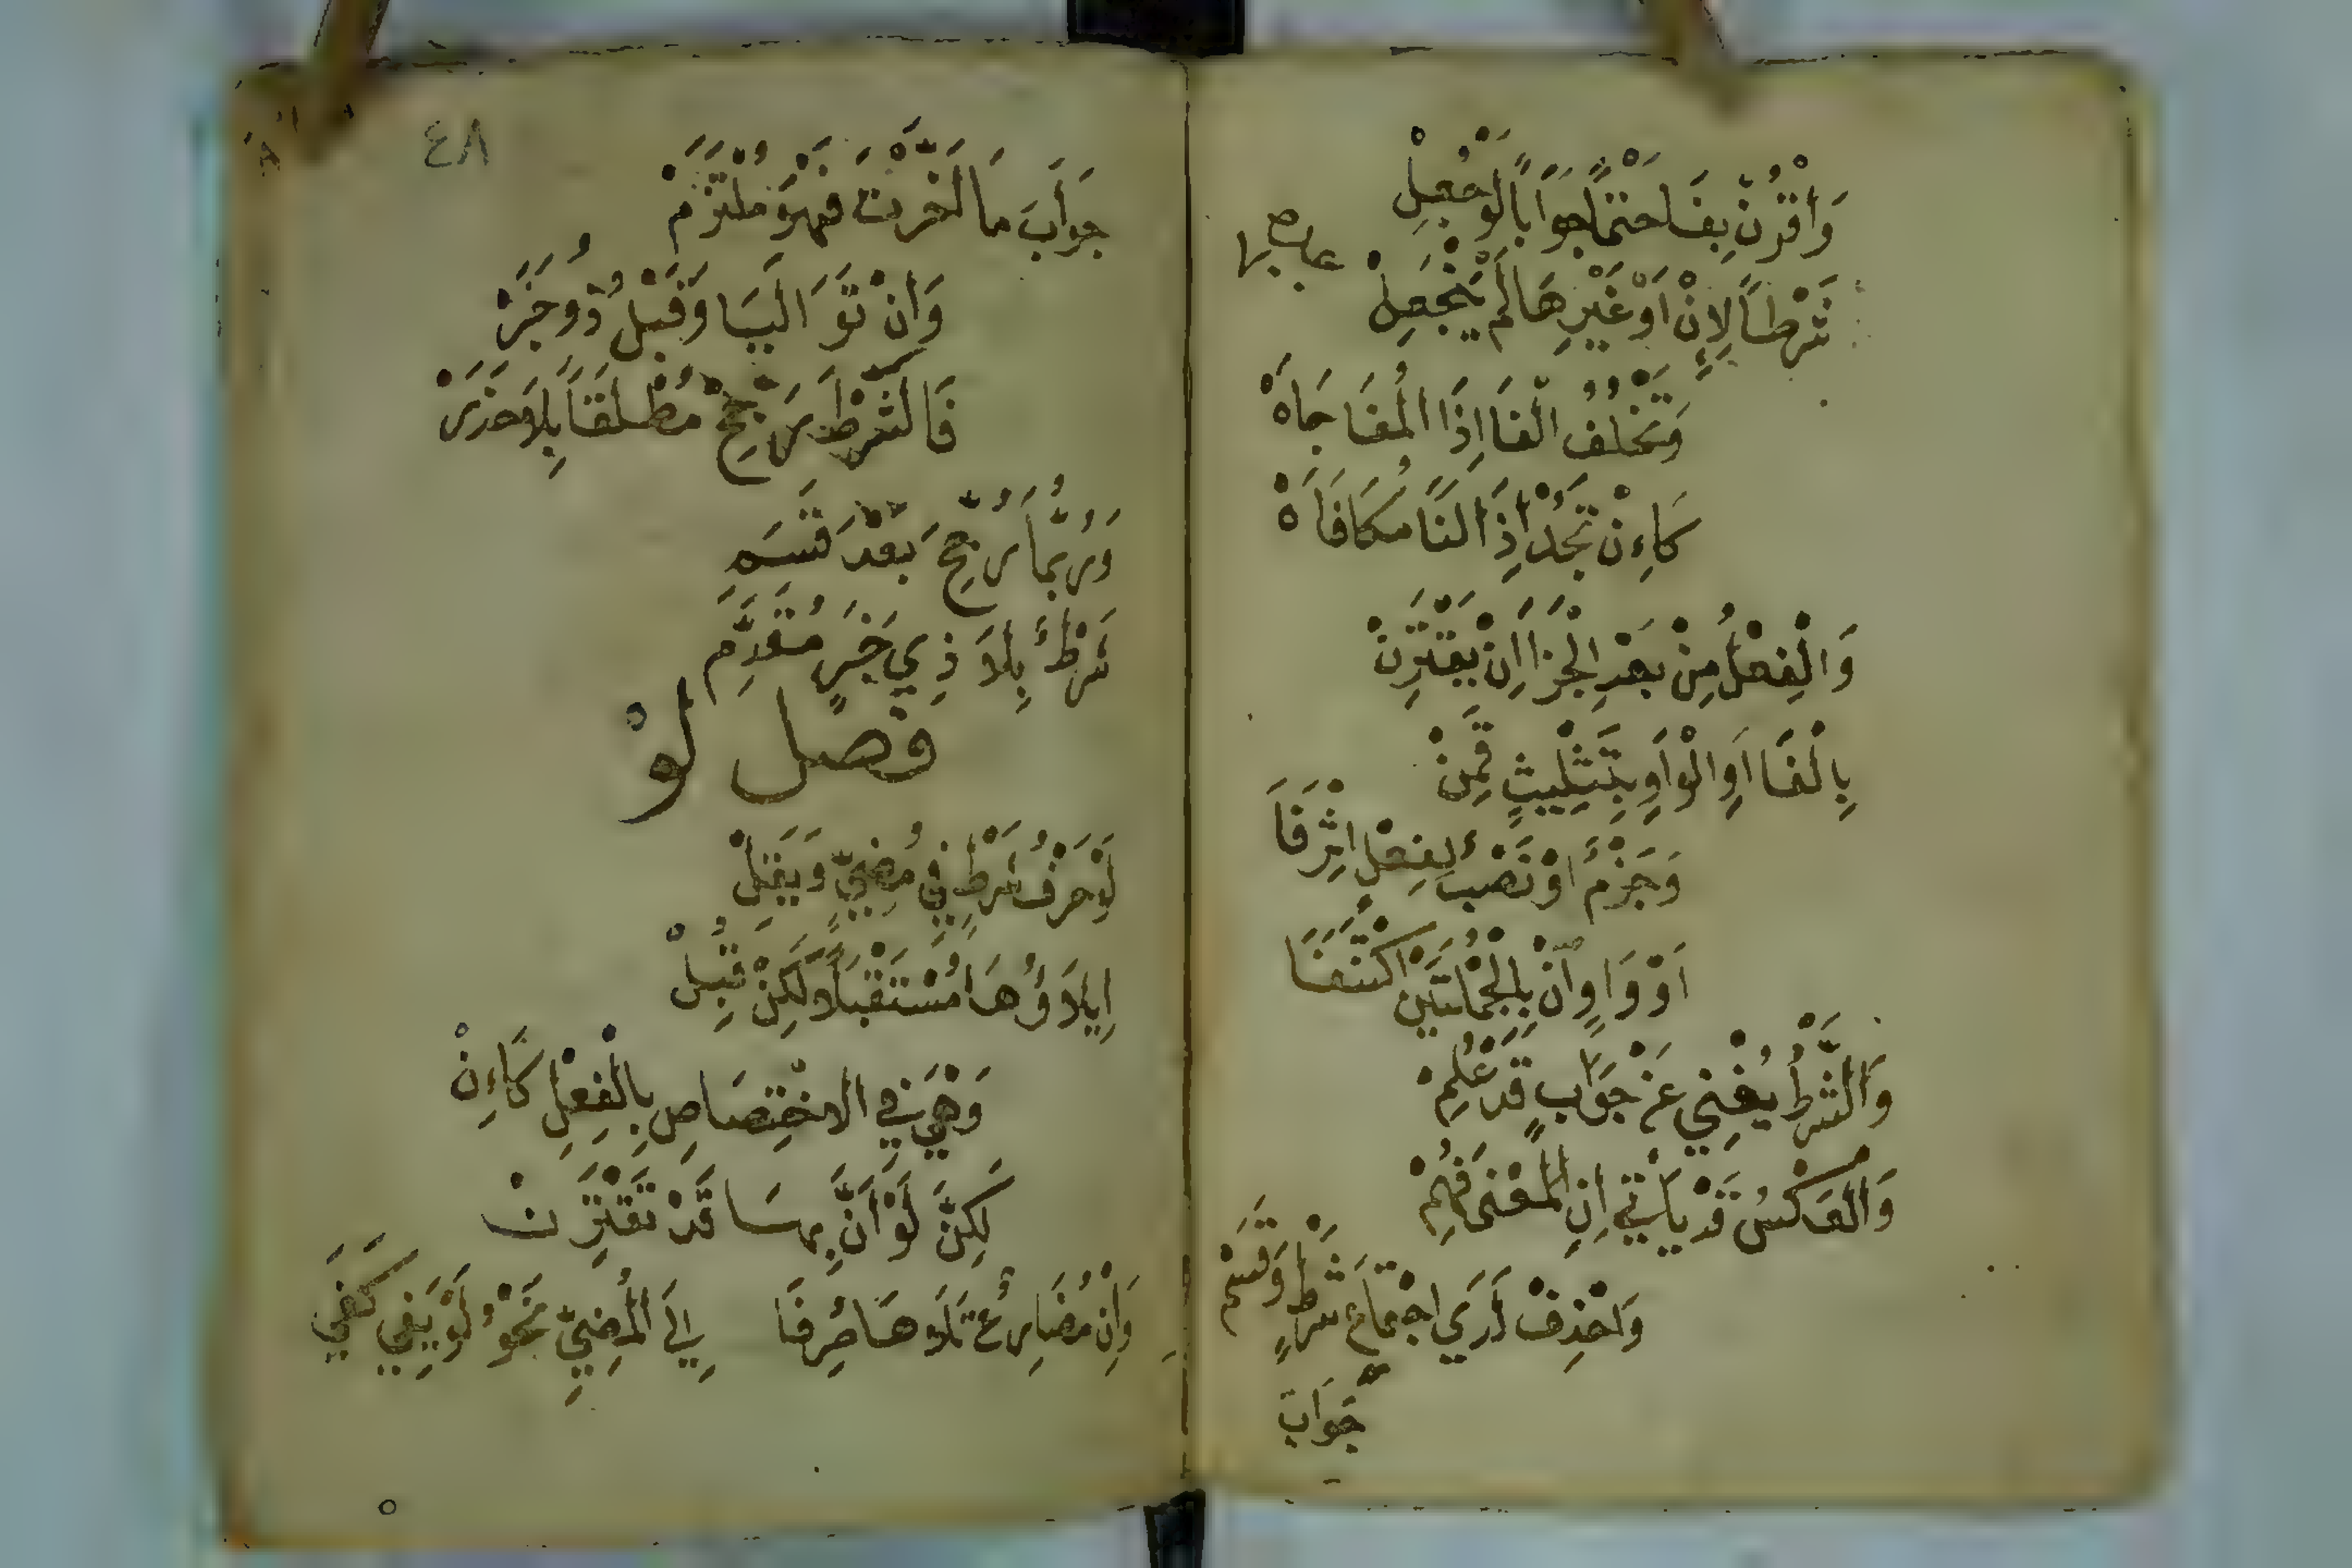 وَاقْرُنْ بِفَا حَتْمًا جَوَابًا لَوْ جُعِلْ
شَرْطًا لِإِنْ أَوْ غَيْرِهَا لَمْ يَنْجَعِلْ
وَتَخْلُفُ الْفَا اِذَا الْمُفَاجَاهْ
كَاءِنْ تَجُدْ اِذَا لَنَا مُكَافَاَهْ
وَالْفِعْلُ مِنْ بَعْدِ الْجَزَا اِنْ يَقْتَرِنْ
بِالْفَا اَوِ الْوَاوِ بِتَثْلِيثٍ قَمِنْ
وَجَزْمٌ اوْ نَصْبٌ لِفِعْلٍ اِثْرَ فَا
اَوْ وَاوٍ انْ بِالْجُمْلَتَيْنِ اكْتُنِفَا
وَالشَّرْطُ يُغْنِي عَنْ جَوَابٍ قَدْ عُلِمْ
وَالْعَكْسُ قَدْ يَاْتِي اِنِ الْمَعْنَى فُهِمْ
وَاحْذِفْ لَدَي اجْتِمَاعِ شَرْطٍ وَقَسَمْ
جَوَابَ
٤٨
جَوَابَ مَا اَخَّرْتَ فَهْوَ مُلْتَزَمْ
وَاِنْ تَوَالَيَا وَقَبْلُ ذُو خَبَرْ
فَالشَّرْطَ رَجِّحْ مُطْلَقًا بِلاَ حَذَرْ
وَرُبَّمَا رُجِّحَ بَعْدَ قَسَمِ
شَرْطٌ بِلاَ ذِي خَبَرٍ مُقَدَّمِ
فصل لَوْ
لَوْ حَرْفُ شَرْطٍ فِي مُضِيٍّ وَيَقِلْ
اِيلاَؤُهَا مُسْتَقْبَلاً لَكِنْ قُبِلْ
وَهْيَ فِي الاخْتِصَاصِ بِالْفِعْلِ كَاءِنْ
لَكِنَّ لَوْ اَنَّ بِهَا قَدْ تَقْتَرِنْ
وَاِنْ مُضَارِعٌ تَلاَهَا صُرِفَا اِلَى الْمُضِيِّ نَحْوُ لَوْ يَفِي كَفَي